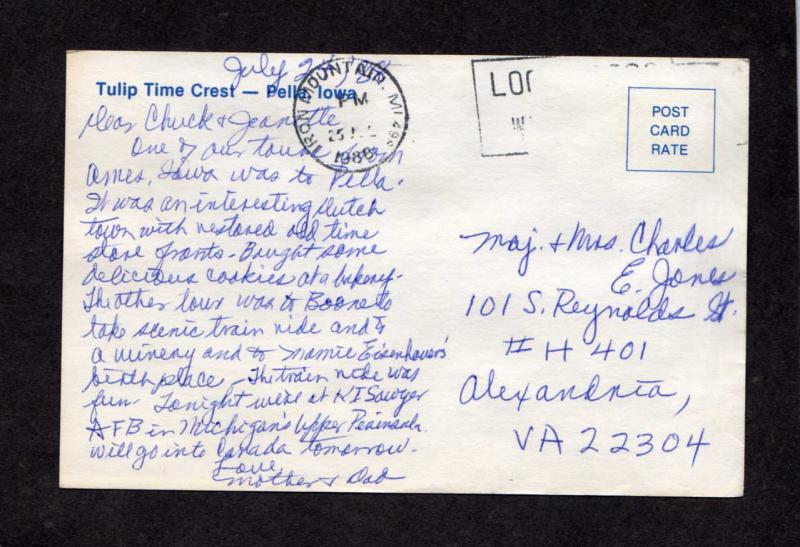 July
Tulip Time Crest — Pella, Iowa
Dear Chuck & Jeanette
One of our tours from
Ames, Iowa was to Pella.
It was an interesting Dutch
town with restored old time
store fronts - Bought some
delicious cookies at a bakery -
The other tour was to Boone to
take scenic train ride and to
a winery and to Mamie Eisenhower's
birth place - The train ride was
fun. Tonight we're at KI Sawyer
AFB in Michigan's Upper Peninsula.
Will go into Canada tomorrow.
Love
Mother & Dad
IRON MOUNTAIN, MI
PM
25
198
LO
POST
CARD
RATE
Maj. & Mrs. Charles
E. Jones
101 S. Reynolds St.
# H 401
Alexandria,
VA 22304